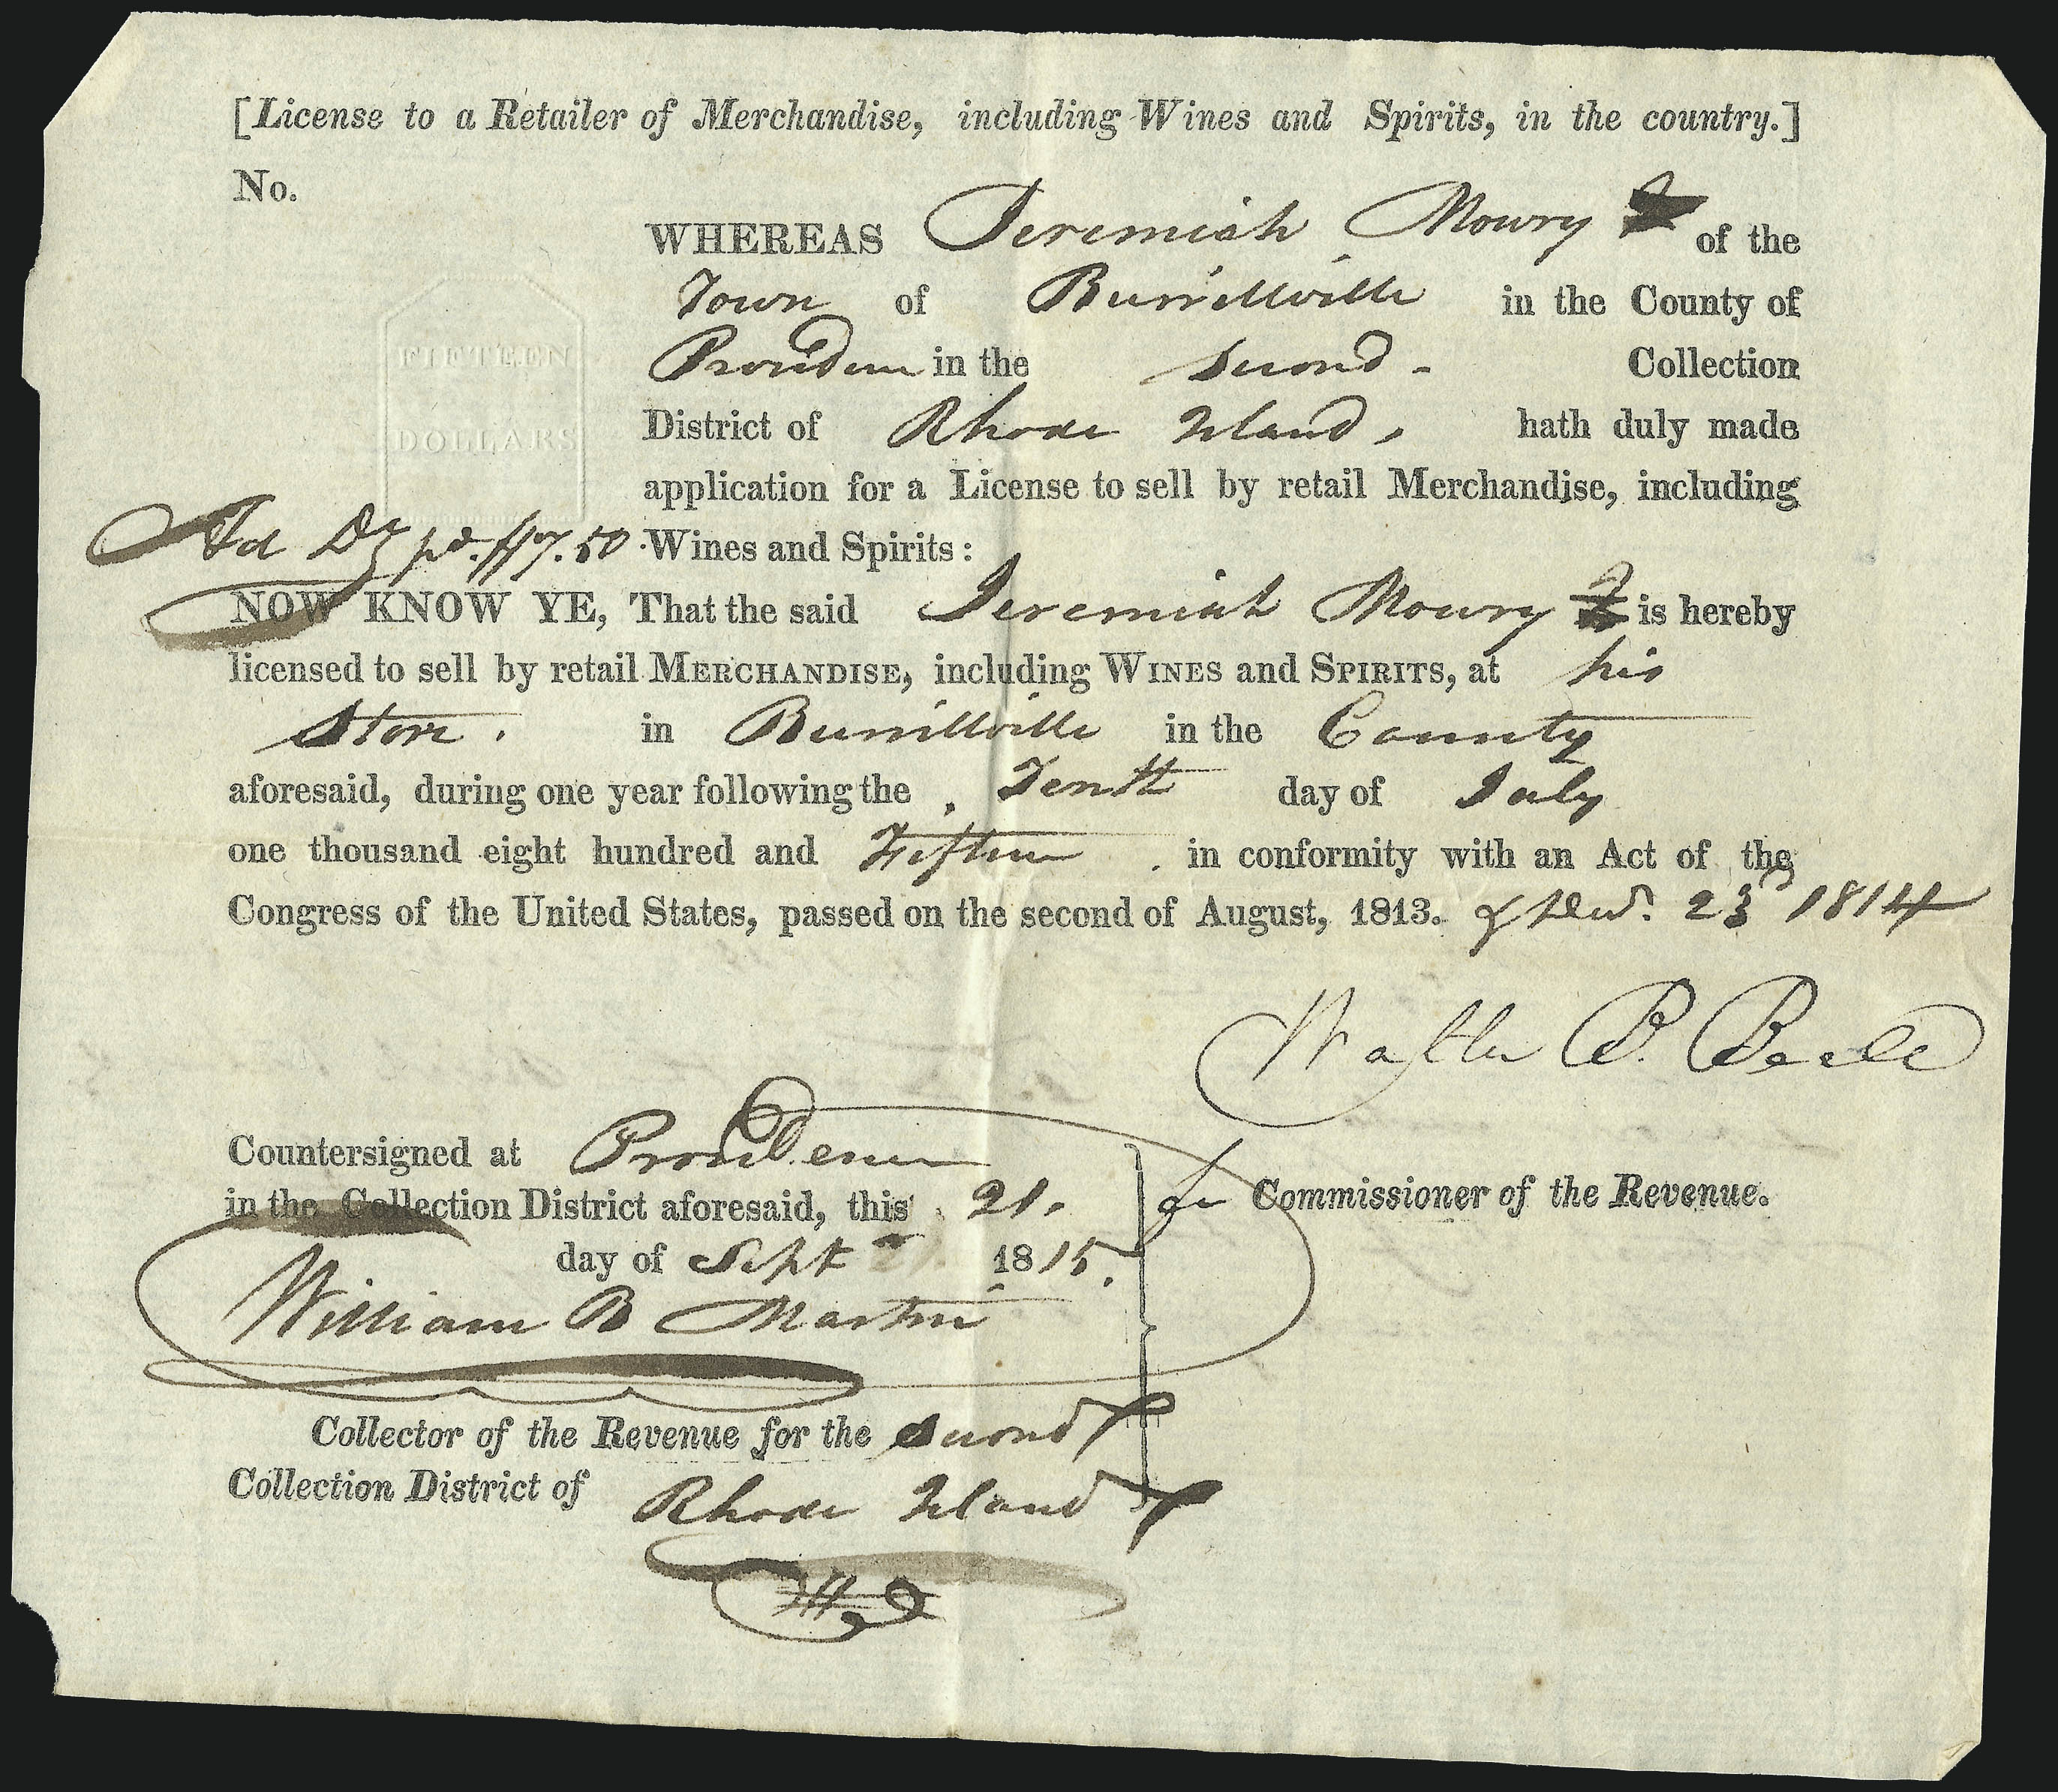 [License to a Retailer of Merchandise, including Wines and Spirits, in the country.]
No.
WHEREAS Jeremiah Mowry of the
Town of Burrillville in the County of
FIFTEEN
Providence in the second Collection
DOLLARS
District of Rhode Island, hath duly made
application for a License to sell by retail Merchandise, including
Ad Dy pd. $7.50 Wines and Spirits:
NOW KNOW YE, That the said Jeremiah Mowry is hereby
licensed to sell by retail MERCHANDISE, including WINES and SPIRITS, at his
Store. in Burrillville in the County
aforesaid, during one year following the Tenth day of July
one thousand eight hundred and Fifteen in conformity with an Act of the
Congress of the United States, passed on the second of August, 1813. & Decr. 23d 1814
Walter B. Beall
Countersigned at Providence
in the Collection District aforesaid, this 21. for Commissioner of the Revenue.
day of Sept 1815.
William B Martin
Collector of the Revenue for the second
Collection District of Rhode Island